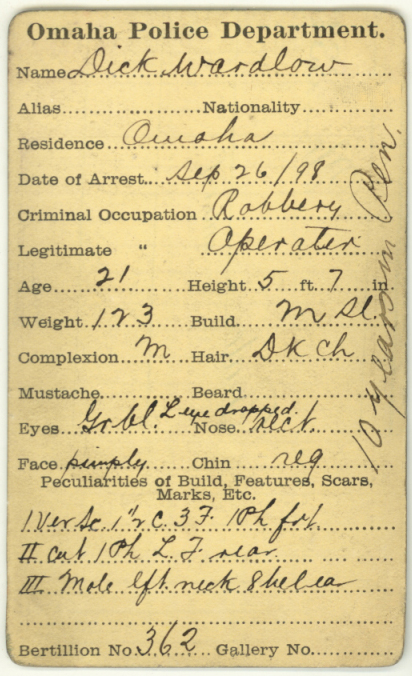 Omaha Police Department.
Name Dick Wardlow
Alias Nationality
Residence Omaha
Date of Arrest Sep 26/98
Criminal Occupation Robbery
Legitimate " Operater
Age 21 Height 5 ft. 7 in.
Weight 123 Build M Sl.
Complexion M Hair Dk ch
Mustache Beard
Eyes Gr bl. L eye dropped. Nose rect.
Face pimply Chin reg
Peculiarities of Build, Features, Scars,
Marks, Etc.
I Ver Sc 1" r C. 3 F 1 Ph frt.
II cut 1 Ph L. F rear
III Mole lft neck 8 bel ear
Bertillion No. 362 Gallery No.
10 years in Pen.